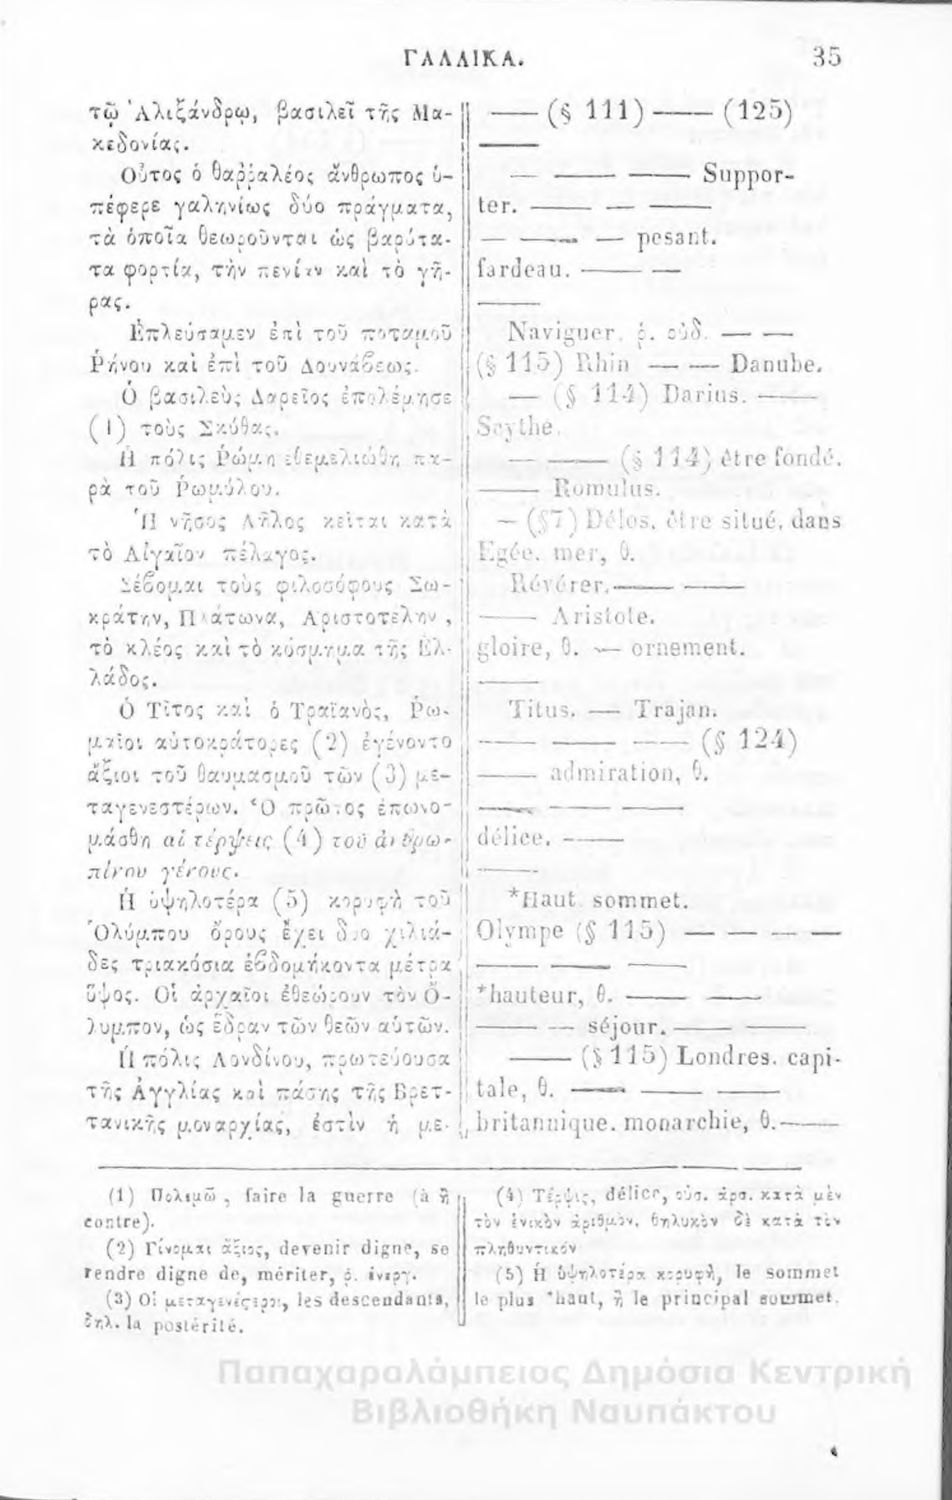 ΓΑΛΛΙΚΑ. 35
τῷ Ἀλεξάνδρῳ, βασιλεῖ τῆς Μα-
κεδονίας.
Οὗτος ὁ θαῤῥαλέος ἄνθρωπος ὑ-
πέφερε γαληνίως δύο πράγματα,
τὰ ὁποῖα θεωροῦνται ὡς βαρύτα-
τα φορτία, τὴν πενίαν καὶ τὸ γῆ-
ρας.
Ἐπλεύσαμεν ἐπὶ τοῦ ποταμοῦ
Ῥήνου καὶ ἐπὶ τοῦ Δουνάβεως.
Ὁ βασιλεὺς Δαρεῖος ἐπολέμησε
(1) τοὺς Σκύθας.
Ἡ πόλις Ῥώμη ἐθεμελιώθη πα-
ρὰ τοῦ Ῥωμύλου.
Ἡ νῆσος Δῆλος κεῖται κατὰ
τὸ Αἰγαῖον πέλαγος.
Σέβομαι τοὺς φιλοσόφους Σω-
κράτην, Πλάτωνα, Ἀριστοτέλην,
τὸ κλέος καὶ τὸ κόσμημα τῆς Ἑλ-
λάδος.
Ὁ Τῖτος καὶ ὁ Τραϊανὸς, Ῥω-
μαῖοι αὐτοκράτορες (2) ἐγένοντο
ἄξιοι τοῦ θαυμασμοῦ τῶν (3) με-
ταγενεστέρων. Ὁ πρῶτος ἐπωνο-
μάσθη αἱ τέρψεις (4) τοῦ ἀνθρω-
πίνου γένους.
Ἡ ὑψηλοτέρα (5) κορυφὴ τοῦ
Ὀλύμπου ὄρους ἔχει δύο χιλιά-
δες τριακόσια ἑβδομήκοντα μέτρα
ὕψος. Οἱ ἀρχαῖοι ἐθεώρουν τὸν Ὄ-
λυμπον, ὡς ἕδραν τῶν θεῶν αὑτῶν.
Ἡ πόλις Λονδίνου, πρωτεύουσα
τῆς Ἀγγλίας καὶ πάσης τῆς Βρετ-
τανικῆς μοναρχίας, ἐστὶν ἡ με-
—— (§ 111) —— (125)
——
— —— —— Suppor-
ter. —— — ——
— —— — pesant.
fardeau. —— —
——
Naviguer. ῥ. οὐδ. — —
(§ 115) Rhin — — Danube.
— (§ 114) Darius. ——
Scythe.
—— —— (§ 114) être fondé.
—— Romulus.
— (§7) Délos. être situé, dans
Egée. mer, θ.
Révérer. —— ——
—— Aristote.
gloire, θ. — ornement.
——
Titus. — Trajan.
—— —— —— (§ 124)
—— admiration, θ.
—— —— ——
délice. ——
——
*Haut sommet.
Olympe (§ 115) — — — —
—— —— ——
*hauteur, θ. —— ——
—— — séjour. —— ——
—— (§ 115) Londres. capi-
tale, θ. —— —— ——
britannique. monarchie, θ. ——
(1) Πολεμῶ, faire la guerre (à ἢ
contre).
(2) Γίνομαι ἄξιος, devenir digne, se
rendre digne de, mériter, ῥ. ἐνεργ.
(3) Οἱ μεταγενέστεροι, les descendants,
δηλ. la postérité.
(4) Τέρψις, délice, οὐσ. ἀρσ. κατὰ μὲν
τὸν ἑνικὸν ἀριθμὸν, θηλυκὸν δὲ κατὰ τὸν
πληθυντικόν
(5) Ἡ ὑψηλοτέρα κορυφὴ, le sommet
le plus *haut, ἢ le principal sommet.
Παπαχαραλάμπειος Δημόσια Κεντρική
Βιβλιοθήκη Ναυπάκτου